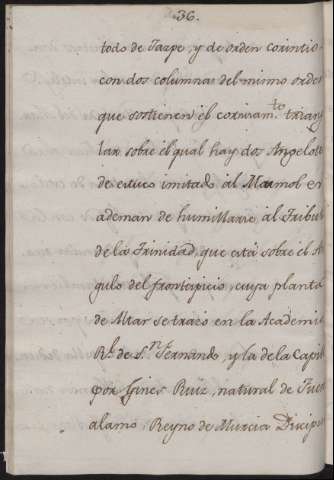 36.
todo de Jaspe, y de orden corintio
con dos columnas del mismo orden
que sostienen el cornisam.to trian
lar sobre el qual hay dos Angelo
de estuco imitado al Marmol en
ademan de humillarse al Tribu
de la Trinidad, que está sobre el A
gulo del frontispicio, cuya planta
de Altar se trazó en la Academi
R.l de S.n Fernando, y la de la Capi
por Gines Ruiz, natural de Fue
alamo Reyno de Murcia Discip